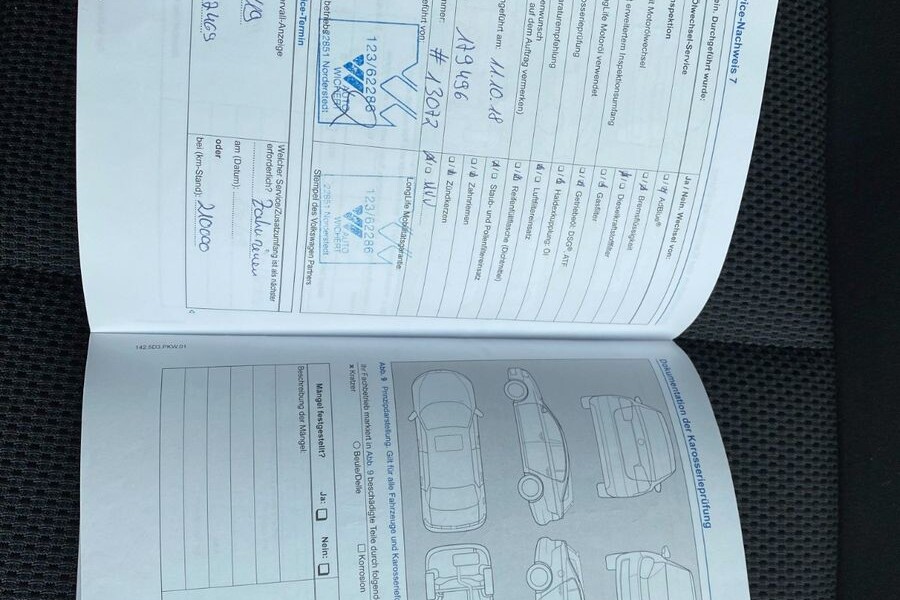 ice-Nachweis 7
ein. Durchgeführt wurde:
lwechsel-Service
spektion
it Motorölwechsel
erweitertem Inspektionsumfang
ngLife Motoröl verwendet
osserieprüfung
araturempfehlung
enwunsch
auf dem Auftrag vermerken)
geführt am: 11.10.18
179496
mmer: # 13072
geführt von:
123/62286
AUTO
WICHERT
22851 Norderstedt
Ja / Nein, Wechsel von:
AdBlue®
Bremsflüssigkeit
Dieselkraftstofffilter
Gasfilter
Getriebeöl: DSG® ATF
Haldexkupplung: Öl
Luftfiltereinsatz
Reifenfüllflasche (Dichtmittel)
Staub- und Pollenfiltereinsatz
Zahnriemen
Zündkerzen
LongLife Mobilitätsgarantie:
123/62286
AUTO
WICHERT
22851 Norderstedt
Stempel des Volkswagen Partners
ce-Termin
ervall-Anzeige
Welcher Service/Zusatzumfang ist als nächster
erforderlich? Zahnriemen
am (Datum):
oder
bei (km-Stand): 210000
Dokumentation der Karosserieprüfung
Abb. 9 Prinzipdarstellung. Gilt für alle Fahrzeuge und Karosseriefo
Ihr Fachbetrieb markiert in Abb. 9 beschädigte Teile durch folgend
x Kratzer
Beule/Delle
Korrosion
Mängel festgestellt?
Ja:
Nein:
Beschreibung der Mängel:
142.5D3.PKW.01